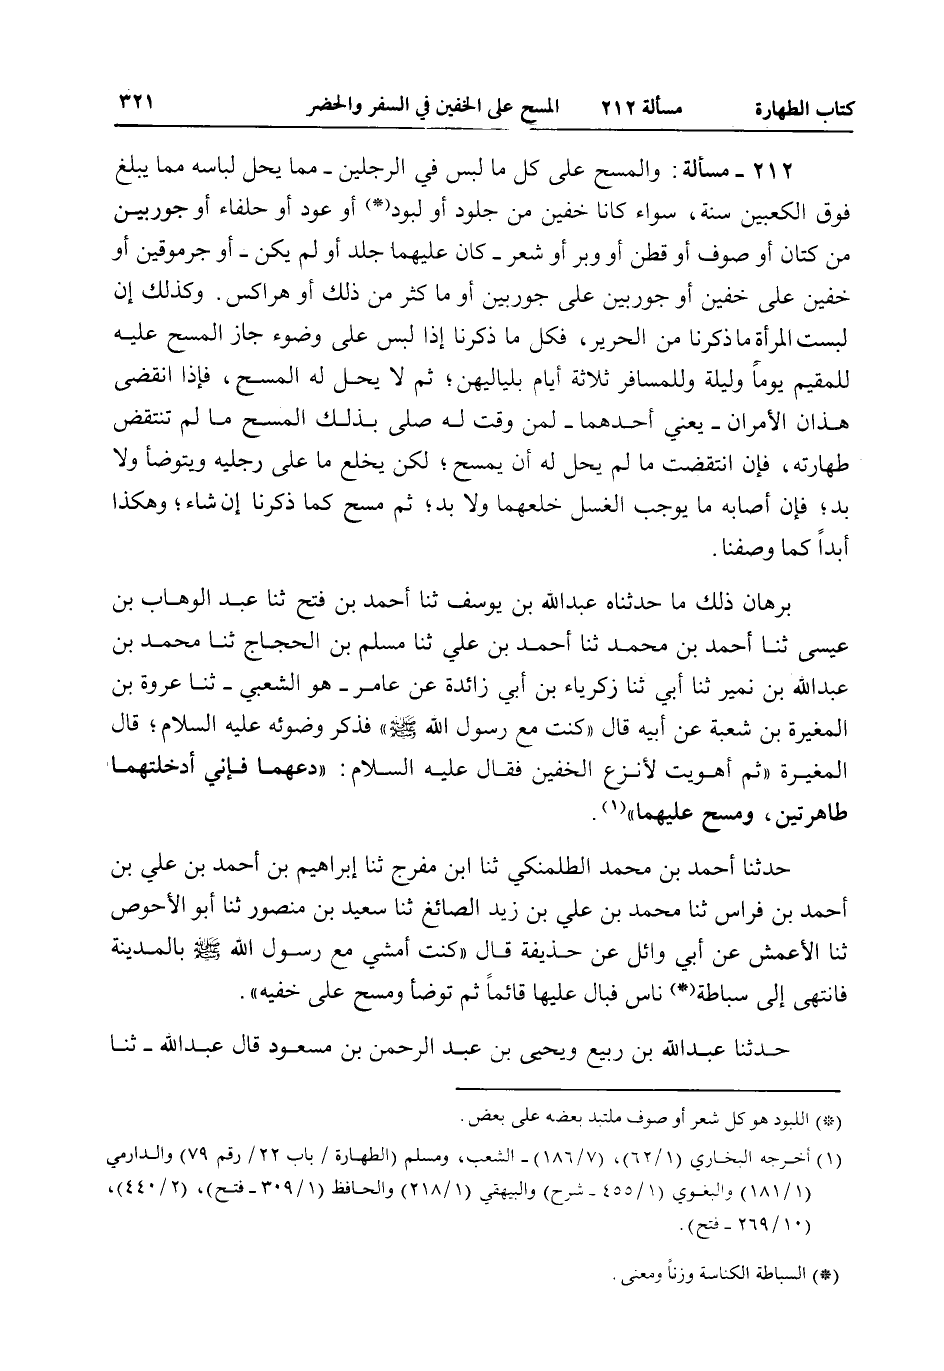 كتاب الطهارة مسألة ٢١٢ المسح على الخفين في السفر والحضر ٣٢١
٢١٢ ـ مسألة: والمسح على كل ما لبس في الرجلين ـ مما يحل لباسه مما يبلغ
فوق الكعبين سنة، سواء كانا خفين من جلود أو لبود(*) أو عود أو حلفاء أو جوربين
من كتان أو صوف أو قطن أو وبر أو شعر ـ كان عليهما جلد أو لم يكن ـ أو جرموقين أو
خفين على خفين أو جوربين على جوربين أو ما كثر من ذلك أو هراكس. وكذلك إن
لبست المرأة ما ذكرنا من الحرير، فكل ما ذكرنا إذا لبس على وضوء جاز المسح عليه
للمقيم يوماً وليلة وللمسافر ثلاثة أيام بلياليهن؛ ثم لا يحل له المسح، فإذا انقضى
هذان الأمران ـ يعني أحدهما ـ لمن وقت له صلى بذلك المسح ما لم تنتقض
طهارته، فإن انتقضت ما لم يحل له أن يمسح؛ لكن يخلع ما على رجليه ويتوضأ ولا
بد؛ فإن أصابه ما يوجب الغسل خلعهما ولا بد؛ ثم مسح كما ذكرنا إن شاء؛ وهكذا
أبداً كما وصفنا.
برهان ذلك ما حدثناه عبدالله بن يوسف ثنا أحمد بن فتح ثنا عبد الوهاب بن
عيسى ثنا أحمد بن محمد ثنا أحمد بن علي ثنا مسلم بن الحجاج ثنا محمد بن
عبدالله بن نمير ثنا أبي ثنا زكرياء بن أبي زائدة عن عامر ـ هو الشعبي ـ ثنا عروة بن
المغيرة بن شعبة عن أبيه قال «كنت مع رسول الله ﷺ» فذكر وضوئه عليه السلام؛ قال
المغيرة «ثم أهويت لأنزع الخفين فقال عليه السلام: «دعهما فإني أدخلتهما
طاهرتين، ومسح عليهما»(١).
حدثنا أحمد بن محمد الطلمنكي ثنا ابن مفرج ثنا إبراهيم بن أحمد بن علي بن
أحمد بن فراس ثنا محمد بن علي بن زيد الصائغ ثنا سعيد بن منصور ثنا أبو الأحوص
ثنا الأعمش عن أبي وائل عن حذيفة قال «كنت أمشي مع رسول الله ﷺ بالمدينة
فانتهى إلى سباطة(*) ناس فبال عليها قائماً ثم توضأ ومسح على خفيه».
حدثنا عبدالله بن ربيع ويحيى بن عبد الرحمن بن مسعود قال عبدالله ـ ثنا
(*) اللبود هو كل شعر أو صوف ملتبد بعضه على بعض.
(١) أخرجه البخاري (٦٢/١)، (١٨٦/٧) ـ الشعب، ومسلم (الطهارة / باب ٢٢/ رقم ٧٩) والدارمي
(١٨١/١) والبغوي (٤٥٥/١ ـ شرح) والبيهقي (٢١٨/١) والحافظ (٣٠٩/١ ـ فتح)، (٤٤٠/٢)،
(٢٦٩/١٠ ـ فتح).
(*) السباطة الكناسة وزناً ومعنى.